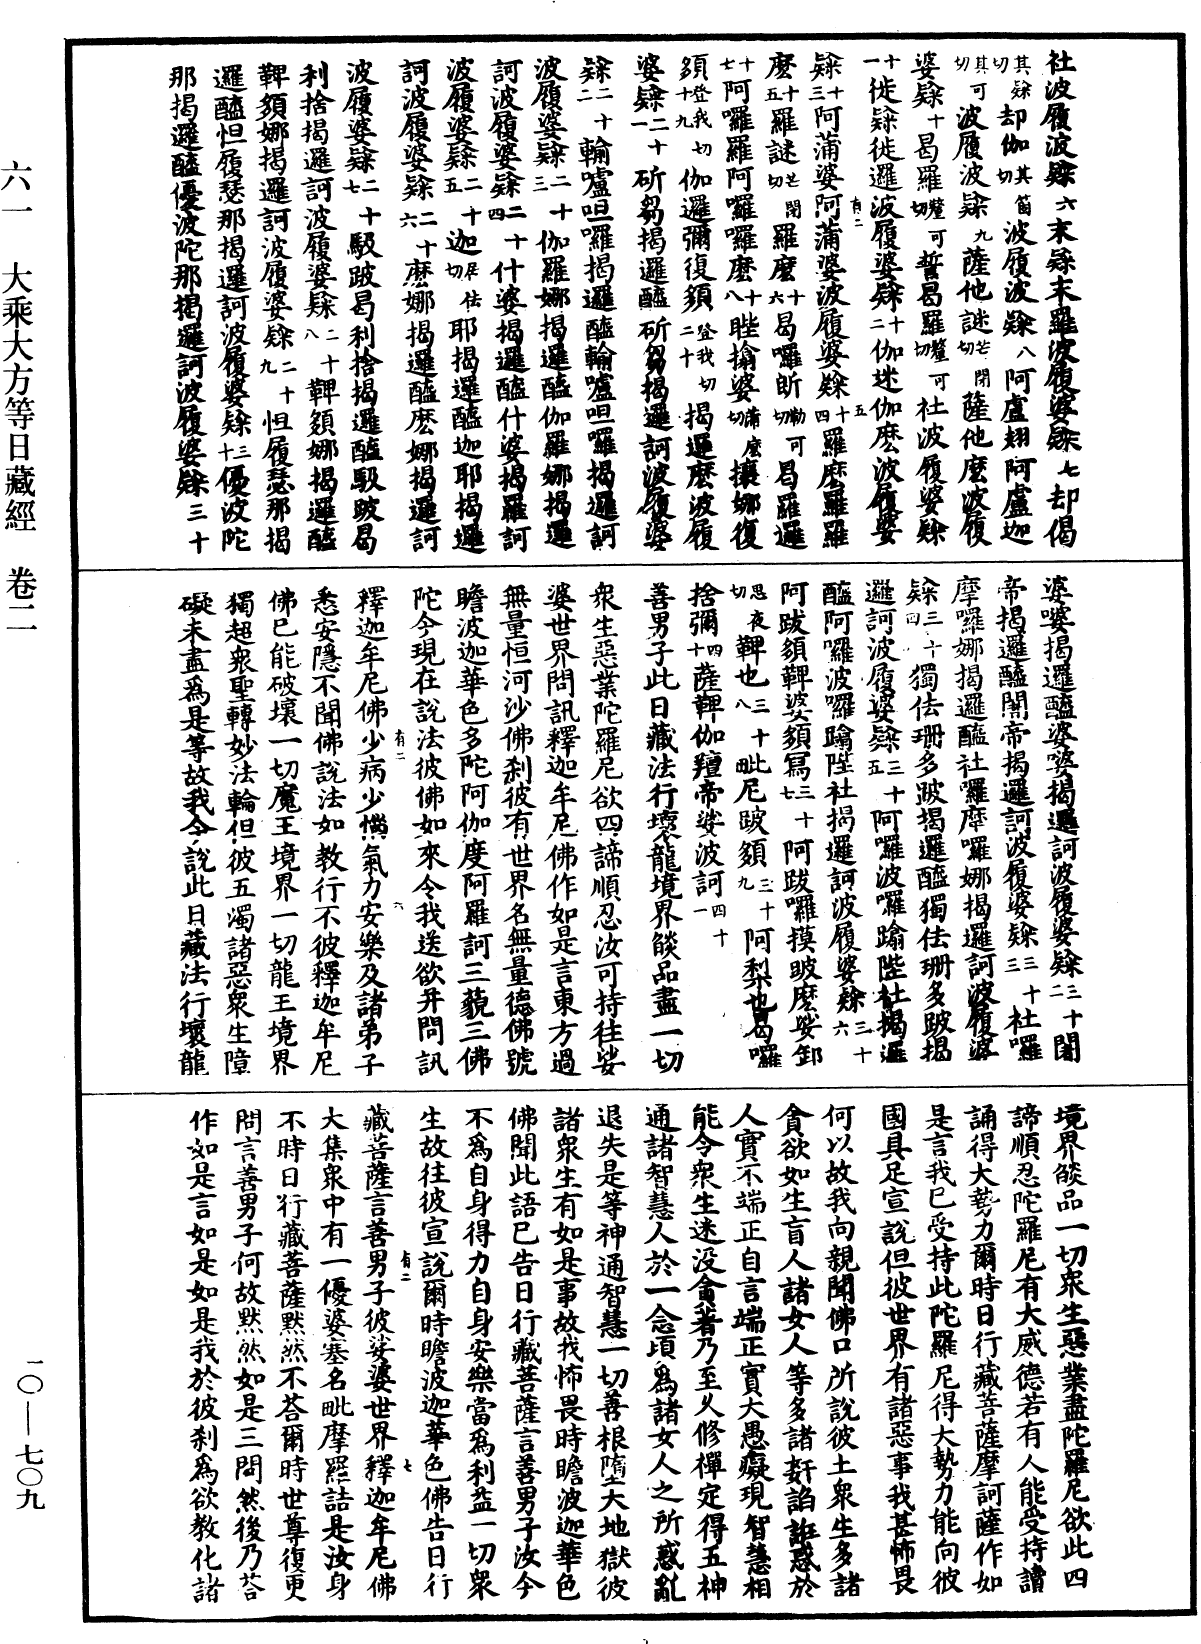 社波履波㜸六末㜸末羅波履婆㜸七却偈
其㜸切却伽其笛切波履波㜸八阿盧翅阿盧迦
其可切波履波㜸九薩他謎芒閉切薩他麼波履
婆㜸十曷羅釐可切誓曷羅釐可切社波履婆㜸
十一徙㜸徙邏波履婆㜸十二伽迷伽麼波履婆
㜸十三阿蒲婆阿蒲婆波履婆㜸十四羅麼羅羅
麼十五羅謎芒閉切羅麼十六曷囉㪽勒可切曷羅邏
十七阿囉羅阿囉囉麼十八𨹟搶婆蒲麼切攘娜復
須登我切十九伽邏彌復須登我切二十揭邏麼波履
婆㜸二十一斫芻揭邏醯斫芻揭邏訶波履婆
㜸二十二輸嚧呾囉揭邏醯輸嚧呾囉揭邏訶
波履婆㜸二十三伽羅娜揭邏醯伽羅娜揭邏
訶波履婆㜸二十四什婆揭邏醯什婆揭羅訶
波履婆㜸二十五迦居佉切耶揭邏醯迦耶揭邏
訶波履婆㜸二十六麼娜揭邏醯麼娜揭邏訶
波履婆㜸二十七馺跛曷利捨揭邏醯馺跛曷
利捨揭邏訶波履婆㜸二十八鞞須娜揭邏醯
鞞須娜揭邏訶波履婆㜸二十九怛履瑟那揭
邏醯怛履瑟那揭邏訶波履婆㜸三十優波陀
那揭邏醯優波陀那揭邏訶波履婆㜸三十一
婆婆揭邏醯婆婆揭邏訶波履婆㜸三十二闍
帝揭邏醯闍帝揭邏訶波履婆㜸三十三社囉
摩囉娜揭邏醯社囉摩囉娜揭邏訶波履婆
㜸三十四獨佉珊多跛揭邏醯獨佉珊多跛揭
邏訶波履婆㜸三十五阿囉波囉踰陛社揭邏
醯阿囉波囉踰陛社揭邏訶波履婆㜸三十六
阿跋須鞞婆須寫三十七阿跋囉摸畋麼娑卸
思夜切鞞也三十八毗尼跛須三十九阿梨也曷囉
捨彌四十薩鞞伽羶帝娑波訶四十一
善男子此日藏法行壞龍境界燄品盡一切
衆生惡業陀羅尼欲四諦順忍汝可持往娑
婆世界問訊釋迦牟尼佛作如是言東方過
無量恒河沙佛刹彼有世界名無量德佛號
瞻波迦華色多陀阿伽度阿羅訶三藐三佛
陀今現在說法彼佛如來令我送欲幷問訊
釋迦牟尼佛少病少惱氣力安樂及諸弟子
悉安隱不聞佛說法如教行不彼釋迦牟尼
佛已能破壞一切魔王境界一切龍王境界
獨超衆聖轉妙法輪但彼五濁諸惡衆生障
礙未盡爲是等故我令說此日藏法行壞龍
境界燄品一切衆生惡業盡陀羅尼欲此四
諦順忍陀羅尼有大威德若有人能受持讀
誦得大勢力爾時日行藏菩薩摩訶薩作如
是言我已受持此陀羅尼得大勢力能向彼
國具足宣說但彼世界有諸惡事我甚怖畏
何以故我向親聞佛口所說彼土衆生多諸
貪欲如生盲人諸女人等多諸奸諂誑惑於
人實不端正自言端正實大愚癡現智慧相
能令衆生迷沒貪著乃至久修禪定得五神
通諸智慧人於一念頃爲諸女人之所惑亂
退失是等神通智慧一切善根墮大地獄彼
諸衆生有如是事故我怖畏時瞻波迦華色
佛聞此語已告日行藏菩薩言善男子汝今
不爲自身得力自身安樂當爲利益一切衆
生故往彼宣說爾時瞻波迦華色佛告日行
藏菩薩言善男子彼娑婆世界釋迦牟尼佛
大集衆中有一優婆塞名毗摩羅詰是汝身
不時日行藏菩薩默然不荅爾時世尊復更
問言善男子何故默然如是三問然後乃荅
作如是言如是如是我於彼刹爲欲教化諸
六一 大乘大方等日藏經 卷二
一〇—七〇九